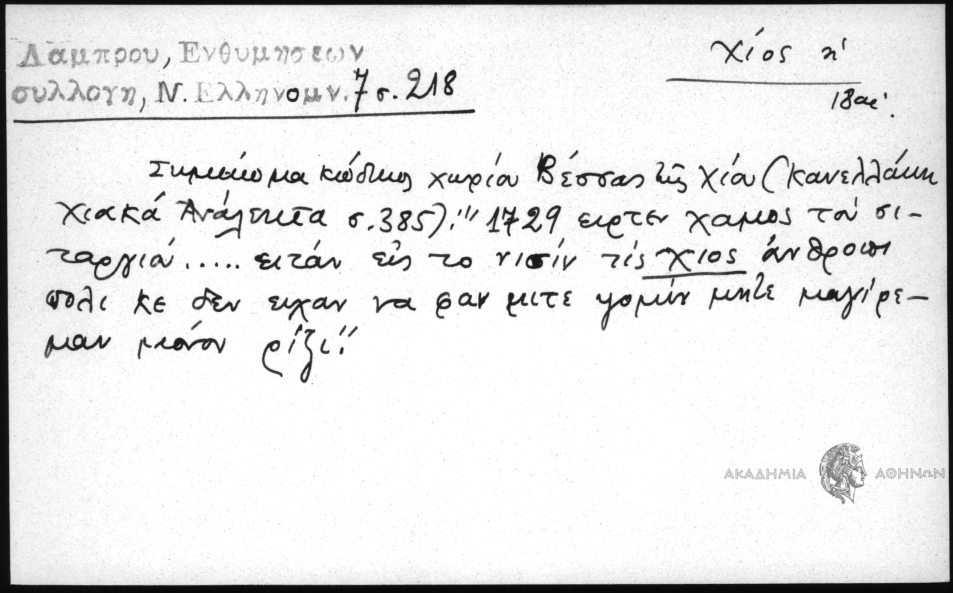 Λάμπρου, Ενθυμησεων
συλλογη, Ν. Ελληνομν. 7 σ. 218
Χίος η'
18 αι.
Σημείωμα κώδικος χωρίου Βέσσας τῆς Χίου (Κανελλάκη
Χιακά Ἀνάλεκτα σ. 385): "1729 ειρτεν χαμος του σι-
ταργιά..... ειτάν εις το νισίν τίς Χιος άνθροπι
πολι κε δεν ειχαν να φαν μιτε ψομίν μήτε μαγίρε-
μαν μιόνον ρίζι"
ΑΚΑΔΗΜΙΑ ΑΘΗΝΩΝ